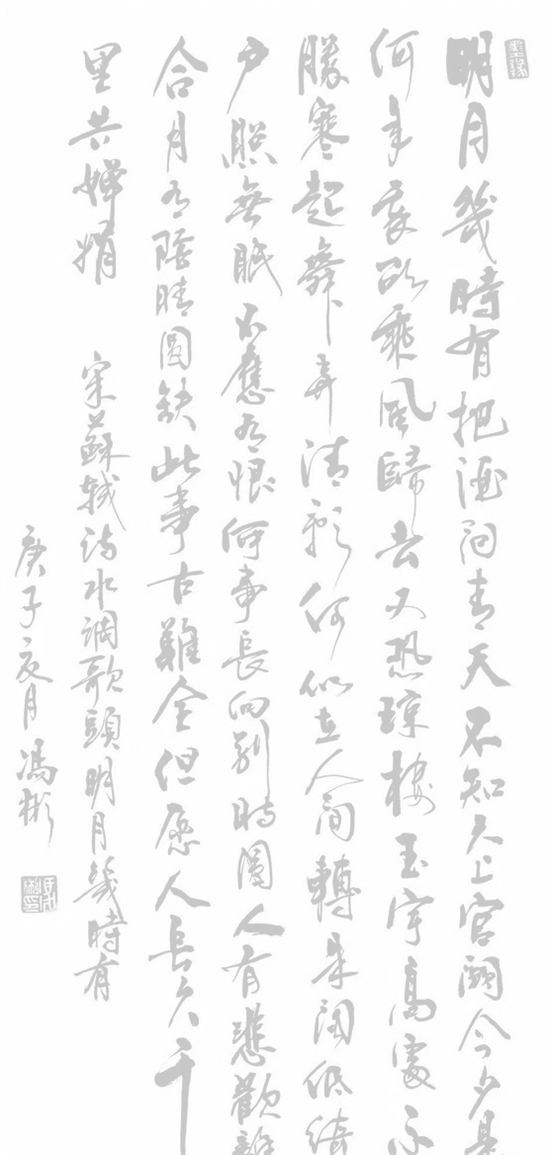 明月幾時有把酒问青天不知天上宫阙今夕是
何年我欲乘風歸去又恐瓊樓玉宇高處不
勝寒起舞弄清影何似在人间轉朱阁低绮
户照無眠不應有恨何事長向别時圆人有悲歡離
合月有陰晴圆缺此事古難全但愿人長久千
里共嬋娟 宋蘇軾词水調歌頭明月幾時有
庚子夏月馮彬